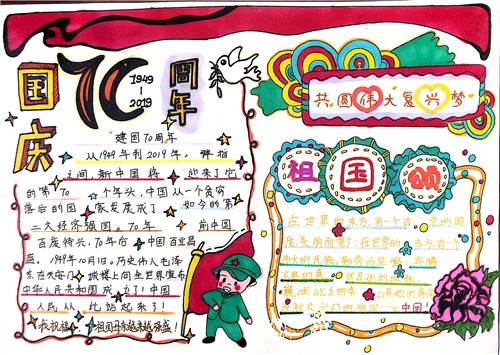 国庆
70
1949
-
2019
周年
建国70周年
从1949年到2019年,弹指
之间,新中国将 迎来了它
的第70 个年头,中国从一个贫穷
落后的国 家发展成了 如今的第
二大经济强国。70年 前中国
百废待兴,70年后 中国百业昌
盛。1949年10月1日,历史伟人毛泽
东在天安门 城楼上向全世界宣布
中华人民共和国成立了!中国
人民从 此站起来了!
我祝福, 祖国 越来越强盛!
共圆伟大复兴梦
祖国颂
在世界的东方,有一个古老的国
度,美丽而宽广;在世界的东方,有一个
伟大的民族,勤劳而坚强。奔腾
不息的黄 是她的血脉,
巍峨屹立的泰 是她的脊
这就是我们的祖国——中国!